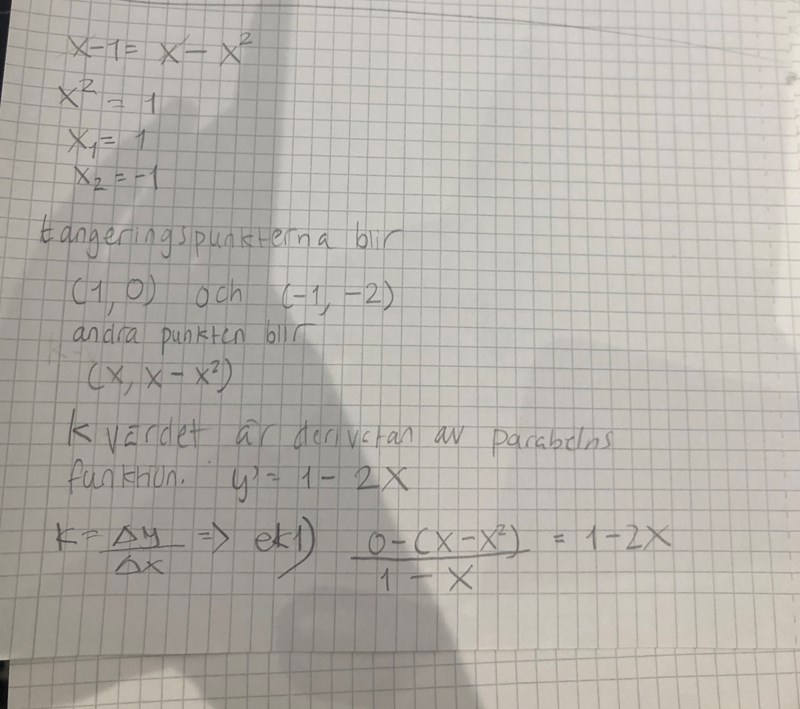 x-1 = x - x²
x² = 1
x₁ = 1
x₂ = -1
tangeringspunkterna blir
(1,0) och (-1,-2)
andra punkten blir
(x, x - x²)
k värdet är derivatan av parabelns
funktion. y' = 1 - 2x
k = Δy/Δx => ek1) (0-(x-x²))/(1-x) = 1-2x